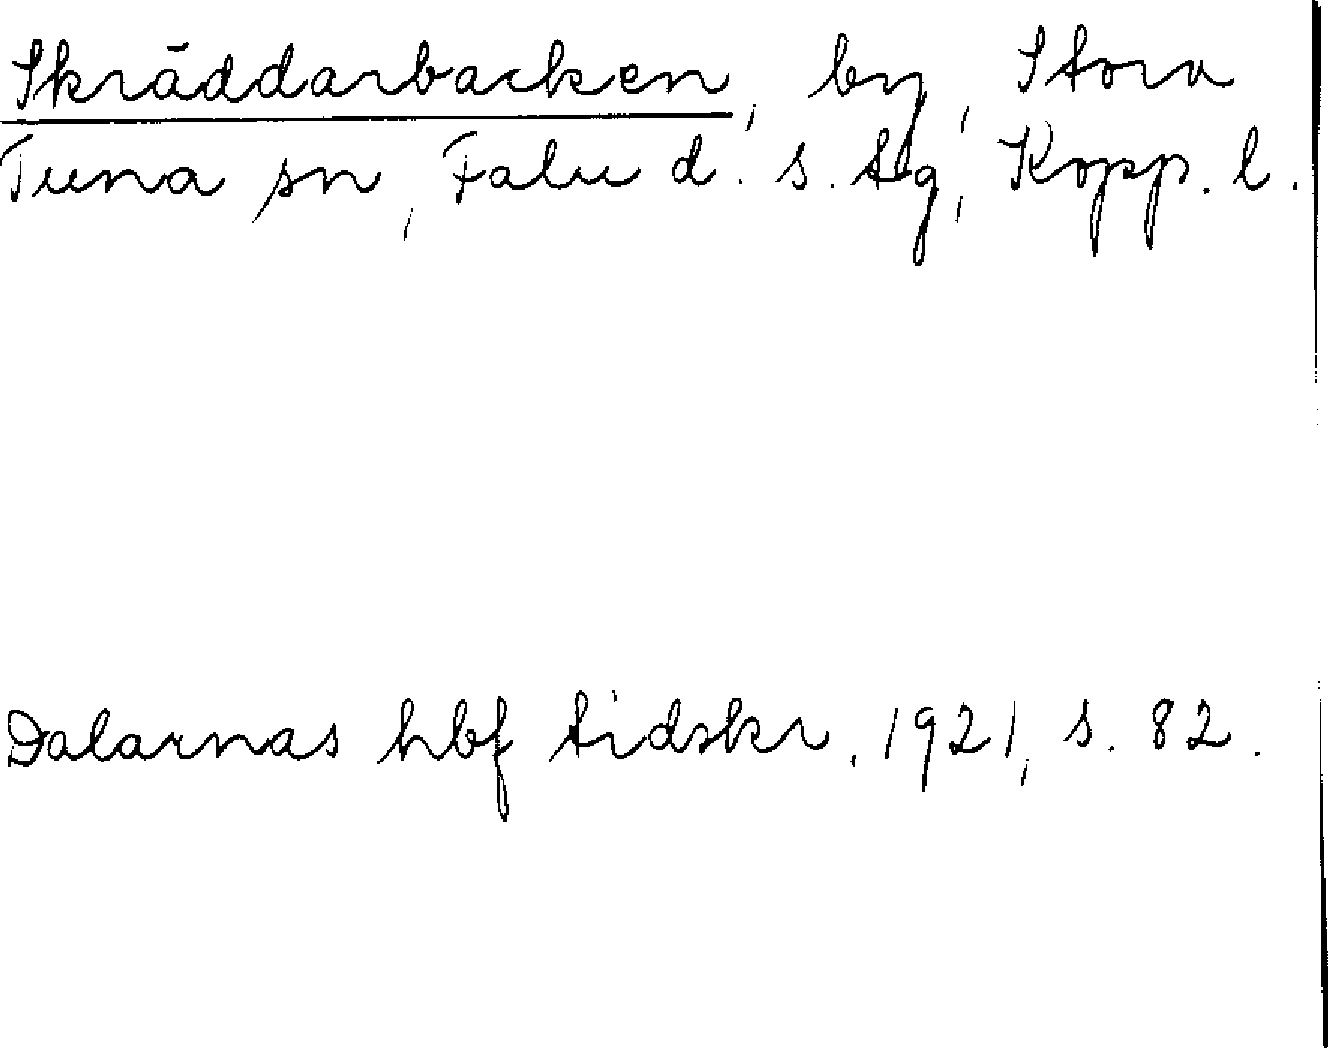 Skräddarbacken, by, Stora
Tuna sn, Falu d. s. tg, Kopp. l.
Dalarnas hbf tidskr. 1921, s. 82.